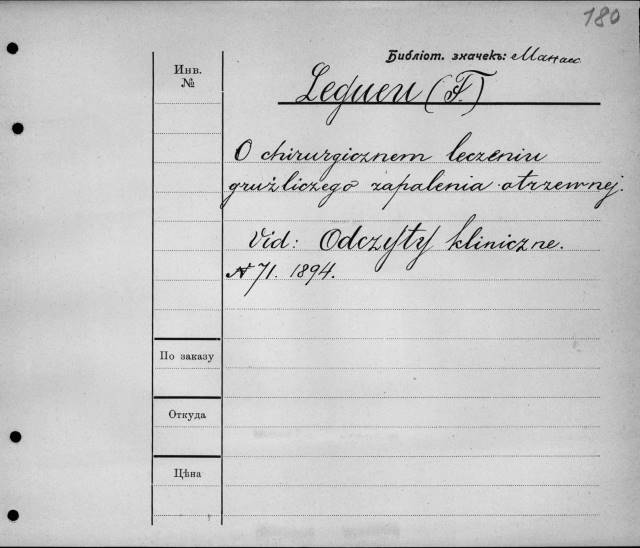 180
Библіот. значекъ: Манас
Инв.
№
Legueu (F.)
O chirurgicznem leczeniu
gruźliczego zapalenia otrzewnej.
Vid: Odczyty kliniczne.
№ 71. 1894.
По заказу
Откуда
Цѣна